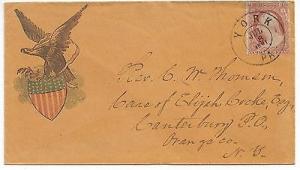 YORK
PA.
Rev. C. W. Thomson,
Care of Elijah Cocke, Esq,
Canterbury P.O.
Orange co.
N. Y.